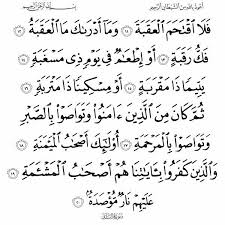 أعوذ بالله من الشيطان الرجيم بسم الله الرحمن الرحيم
فَلَا ٱقْتَحَمَ ٱلْعَقَبَةَ ١١ وَمَآ أَدْرَىٰكَ مَا ٱلْعَقَبَةُ ١٢
فَكُّ رَقَبَةٍ ١٣ أَوْ إِطْعَٰمٌ فِى يَوْمٍ ذِى مَسْغَبَةٍ ١٤
يَتِيمًا ذَا مَقْرَبَةٍ ١٥ أَوْ مِسْكِينًا ذَا مَتْرَبَةٍ ١٦
ثُمَّ كَانَ مِنَ ٱلَّذِينَ ءَامَنُوا۟ وَتَوَاصَوْا۟ بِٱلصَّبْرِ
وَتَوَاصَوْا۟ بِٱلْمَرْحَمَةِ ١٧ أُو۟لَٰٓئِكَ أَصْحَٰبُ ٱلْمَيْمَنَةِ ١٨
وَٱلَّذِينَ كَفَرُوا۟ بِـَٔايَٰتِنَا هُمْ أَصْحَٰبُ ٱلْمَشْـَٔمَةِ ١٩
عَلَيْهِمْ نَارٌ مُّؤْصَدَةٌۢ ٢٠